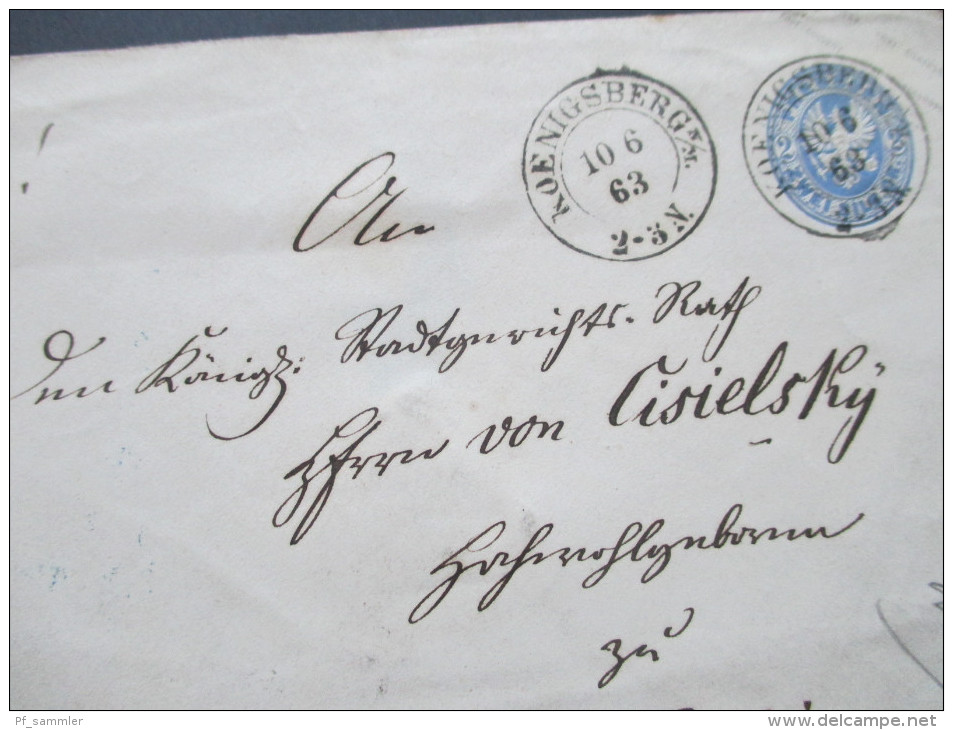 KOENIGSBERG N/M.
10 6
63
2-3 N.
KOENIGSBERG
10 6
63
An
Den Königl: Stadtgerichts-Rath
Herrn von Cisielsky
Hochwohlgeboren
zu
Pf_sammler
www.delcampe.net